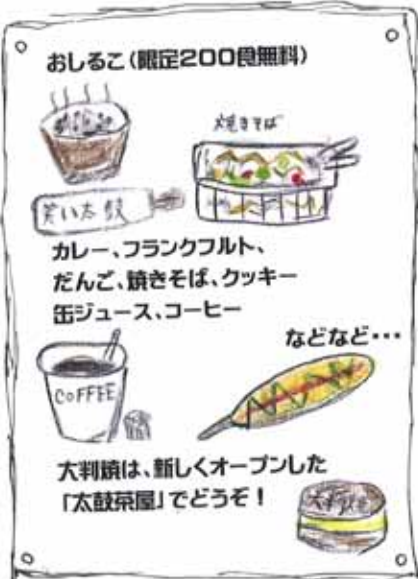 おしるこ(限定200食無料)
焼きそば
笑い太鼓
カレー、フランクフルト、
だんご、焼きそば、クッキー
缶ジュース、コーヒー
などなど・・・
COFFEE
大判焼は、新しくオープンした
「太鼓茶屋」でどうぞ!
大判焼